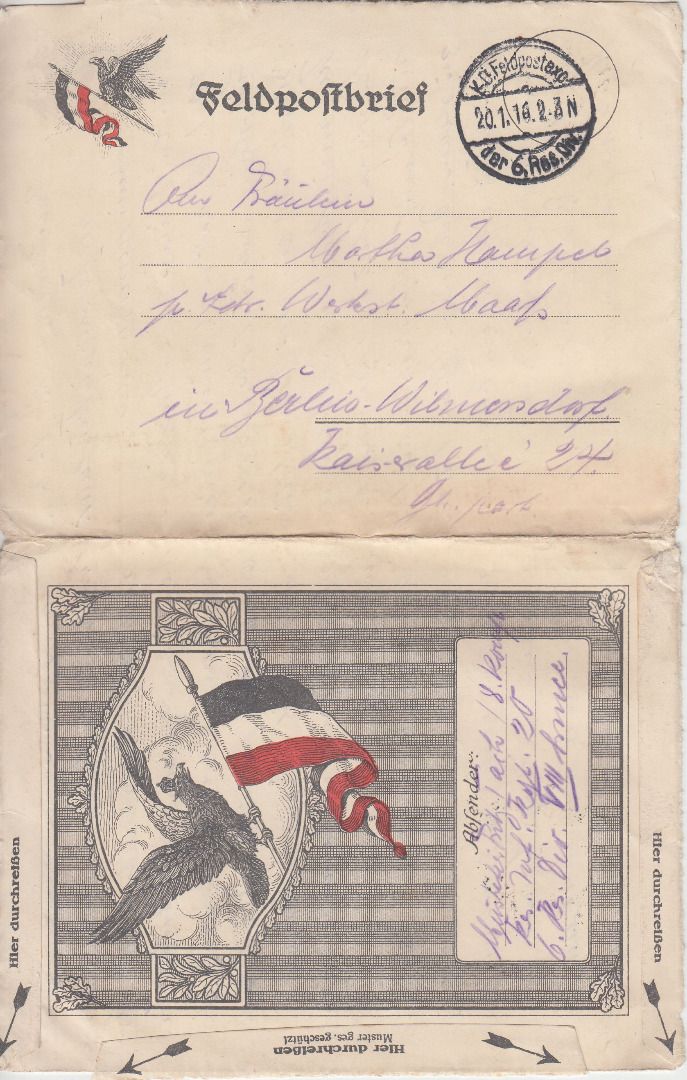 Feldpostbrief
K.D. Feldpostexp.
20.1.16. 2-3 N
der 6. Res. Div.
An Fräulein
Martha Hampel
p
Werkst. Maaß
in Berlin-Wilmersdorf
Kaiserallee 24.
Absender:
8. Komp.
Res. Inf. Rgt. 20
6. Res. Div. VIII Armee.
Hier durchreißen
Hier durchreißen
Hier durchreißen
Muster ges. geschützt